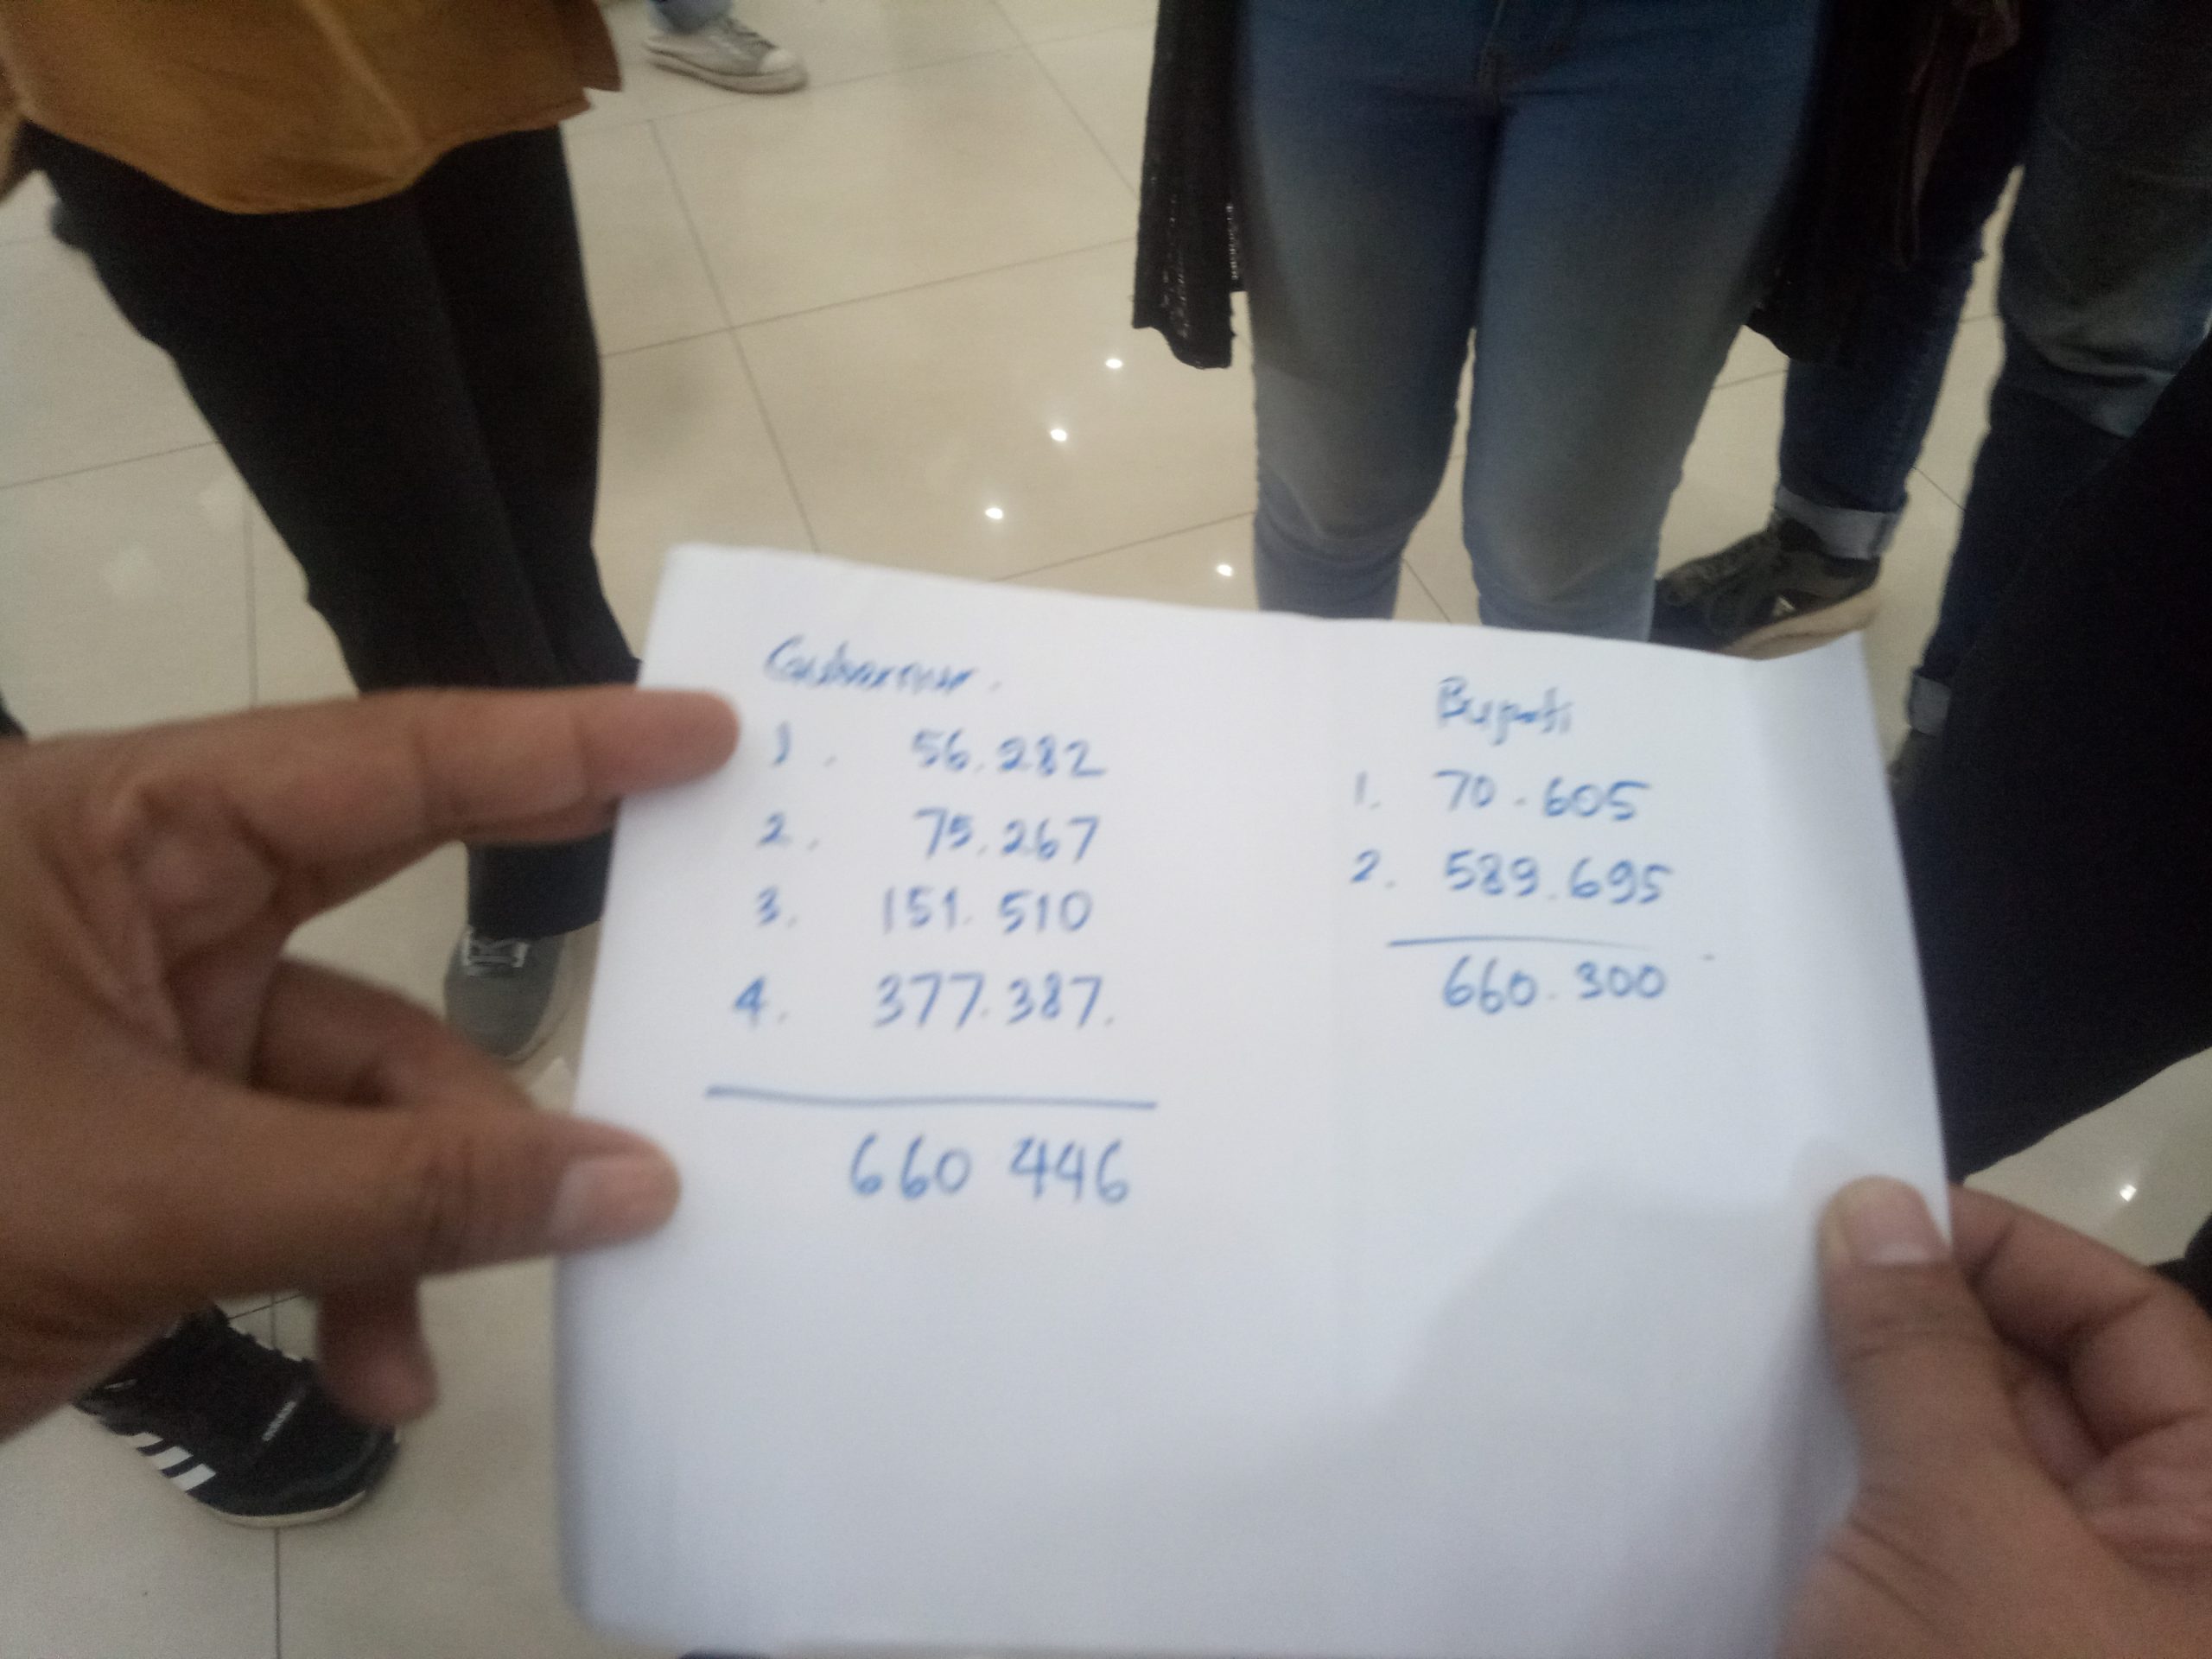 Gubernur.
1. 56.282
2. 75.267
3. 151.510
4. 377.387.
660 446
Bupati
1. 70.605
2. 589.695
660.300